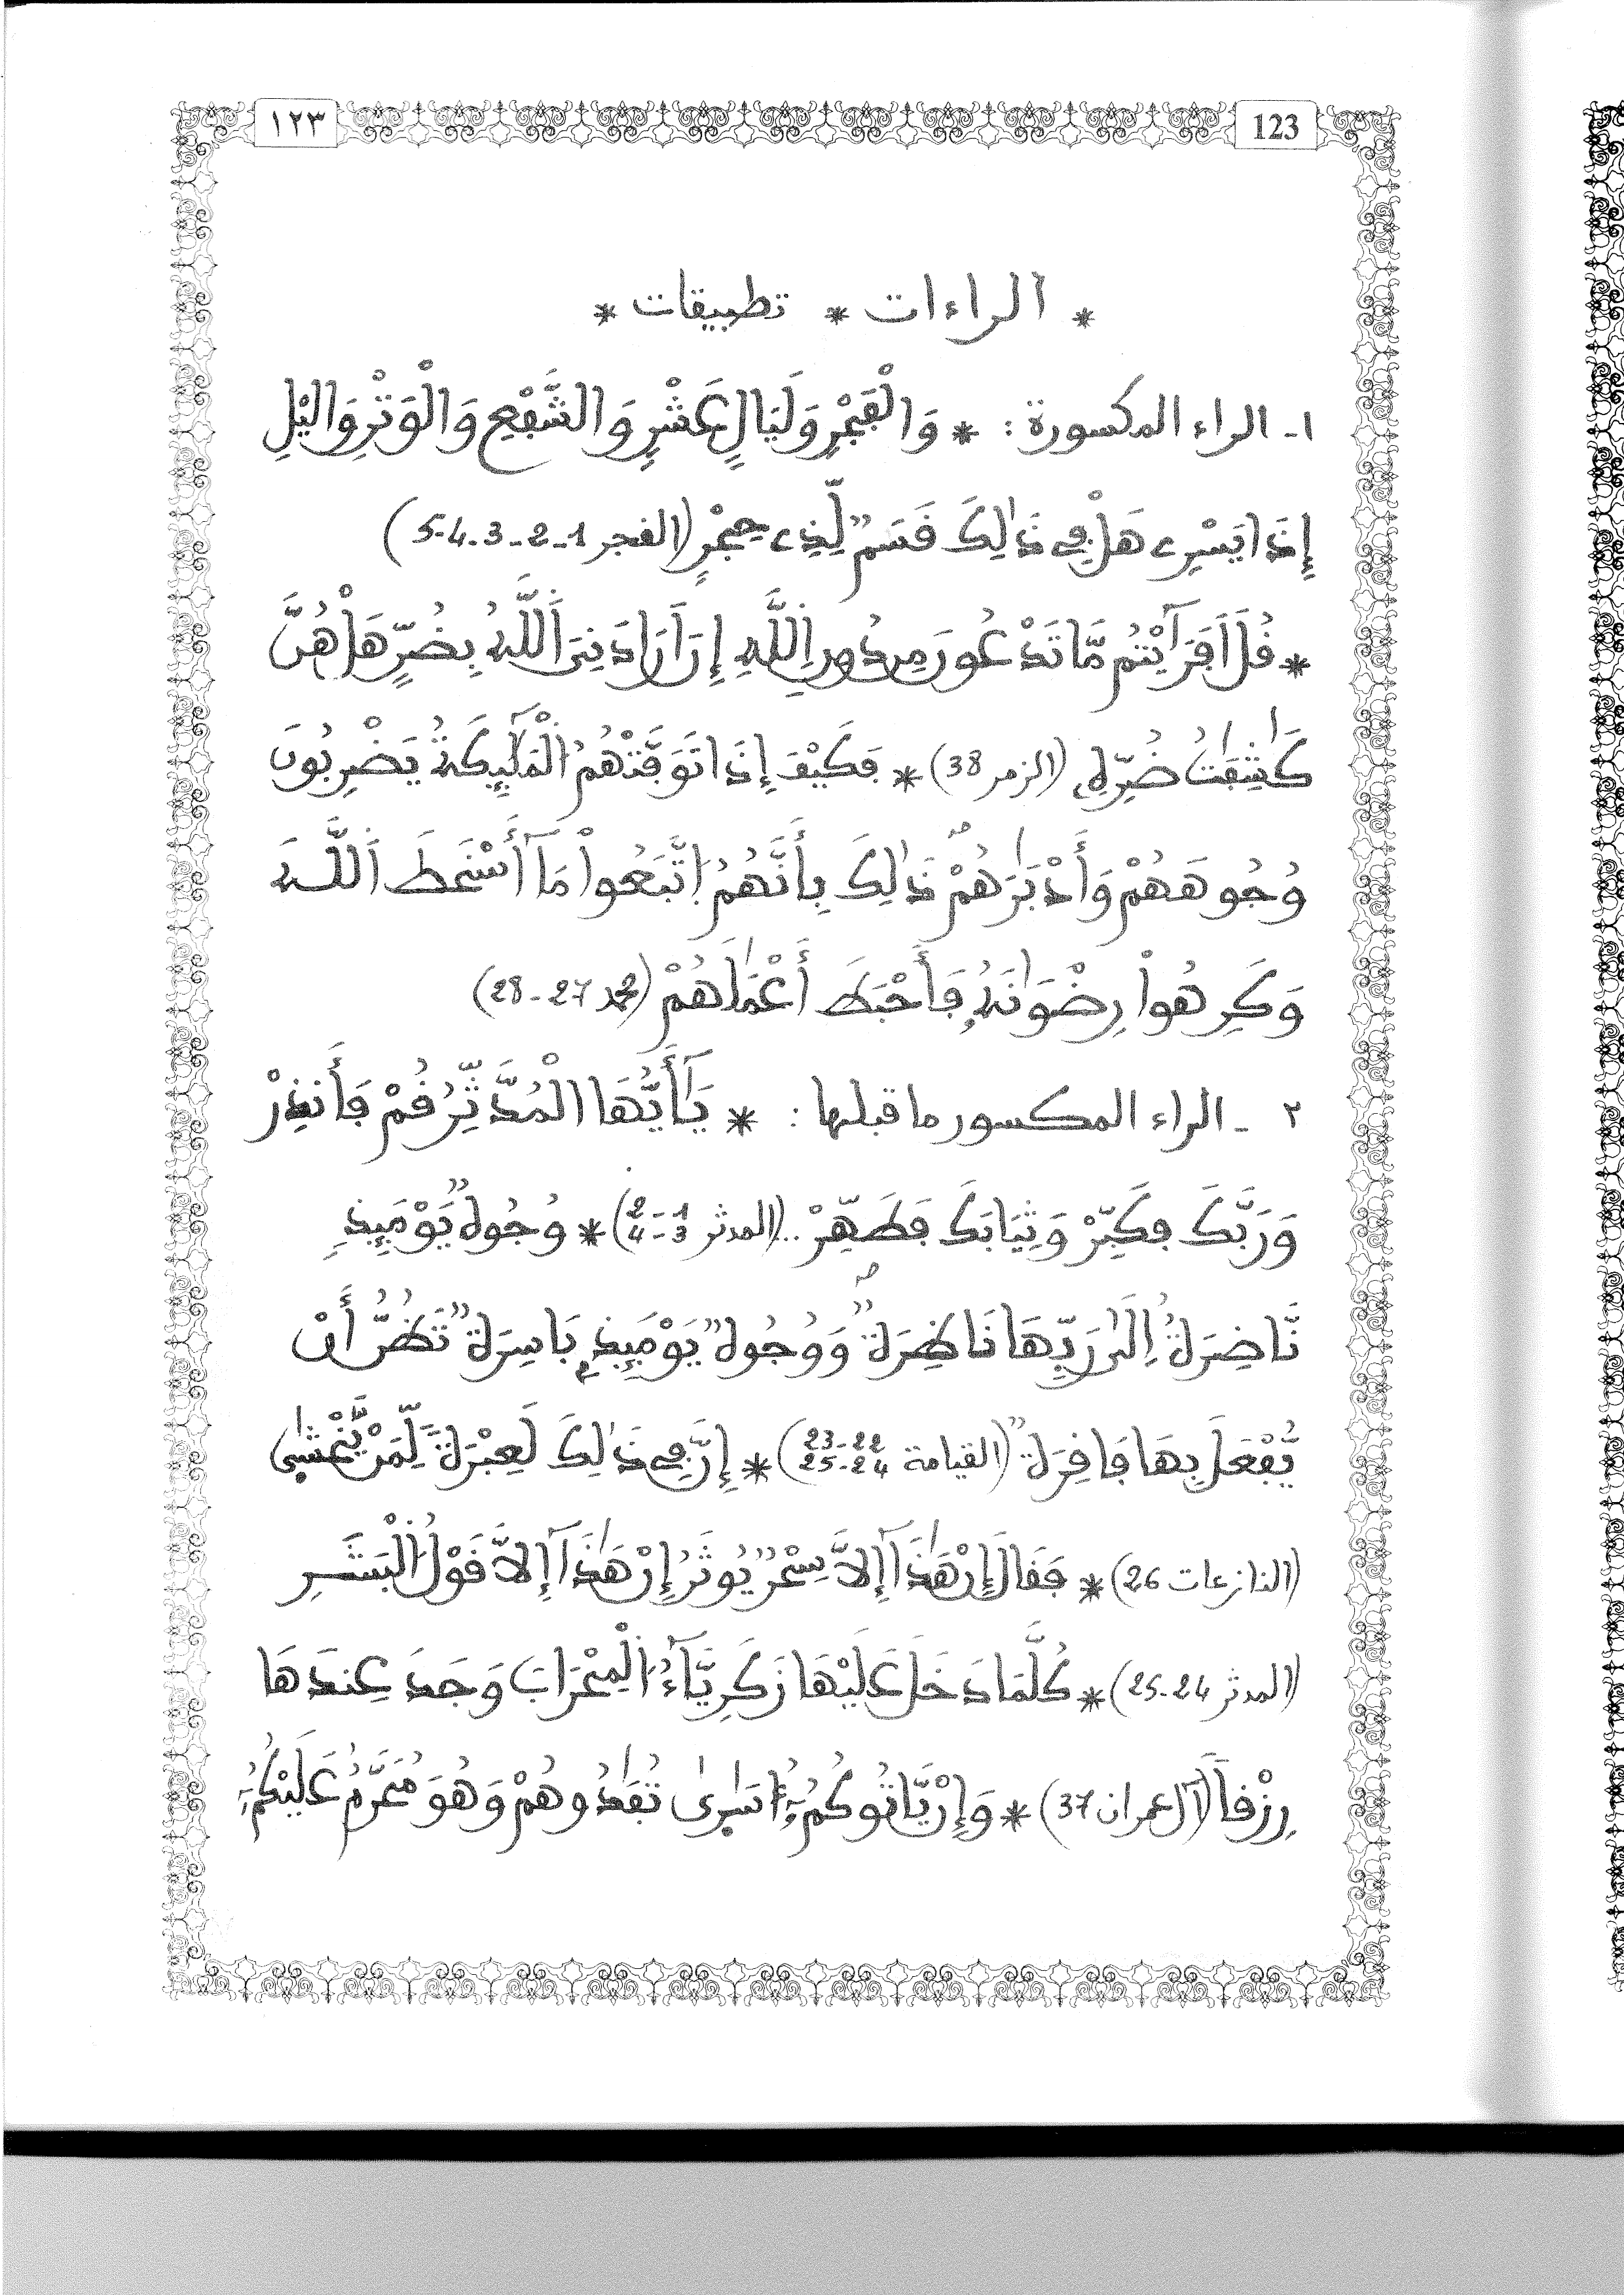 123 ١٢٣
* الراءات * تطبيقات *
١- الراء المكسورة : * وَالْفَجْرِ وَلَيَالٍ عَشْرٍ وَالشَّفْعِ وَالْوَتْرِ وَاليْلِ
إِذَا يَسْرِۦ هَلْ فِے ذَٰلِكَ قَسَمٌ لِّذِے حِجْرٍ (الفجر 1-2-3-4-5)
* قُلَ اَفَرَآيْتُم مَّا تَدْعُونَ مِن دُونِ اِللَّهِ إِنَ اَرَادَنِىَ اَللَّهُ بِضُرٍّ هَلْ هُنَّ
كَٰشِفَٰتُ ضُرِّهِۦ (الزمر 38) * فَكَيْفَ إِذَا تَوَفَّتْهُمُ الْمَلَٰٓئِكَةُ يَضْرِبُونَ
وُجُوهَهُمْ وَأَدْبَٰرَهُمْ ذَٰلِكَ بِأَنَّهُمُ اتَّبَعُواْ مَآ أَسْخَطَ اَللَّهَ
وَكَرِهُواْ رِضْوَٰنَهُۥ فَأَحْبَطَ أَعْمَٰلَهُمْ (محمد 27-28)
٢ - الراء المكسور ما قبلها : * يَٰٓأَيُّهَا الْمُدَّثِّرُ قُمْ فَأَنذِرْ
وَرَبَّكَ فَكَبِّرْ وَثِيَابَكَ فَطَهِّرْ ...(المدثر 1-2 3-4) * وُجُوهٌ يَوْمَئِذٍ
نَّاضِرَةٌ اِلَىٰ رَبِّهَا نَاظِرَةٌ وَوُجُوهٌ يَوْمَئِذٍ بَاسِرَةٌ تَظُنُّ أَنْ
يُّفْعَلَ بِهَا فَاقِرَةٌ (القيامة 22-23 24-25) * إِنَّ فِے ذَٰلِكَ لَعِبْرَةً لِّمَنْ يَّخْشَىٰ
(النازعات 26) * فَقَالَ إِنْ هَٰذَآ إِلاَّ سِحْرٌ يُوثَرُ إِنْ هَٰذَآ إِلاَّ قَوْلُ الْبَشَرِ
(المدثر 24-25) * كُلَّمَا دَخَلَ عَلَيْهَا زَكَرِيَّآءُ الْمِحْرَابَ وَجَدَ عِندَهَا
رِزْقاً (آل عمران 37) * وَإِنْ يَّاتُوكُمُۥٓ أُسَٰرَىٰ تُفَٰدُوهُمْ وَهُوَ مُحَرَّمٌ عَلَيْكُمُۥٓ